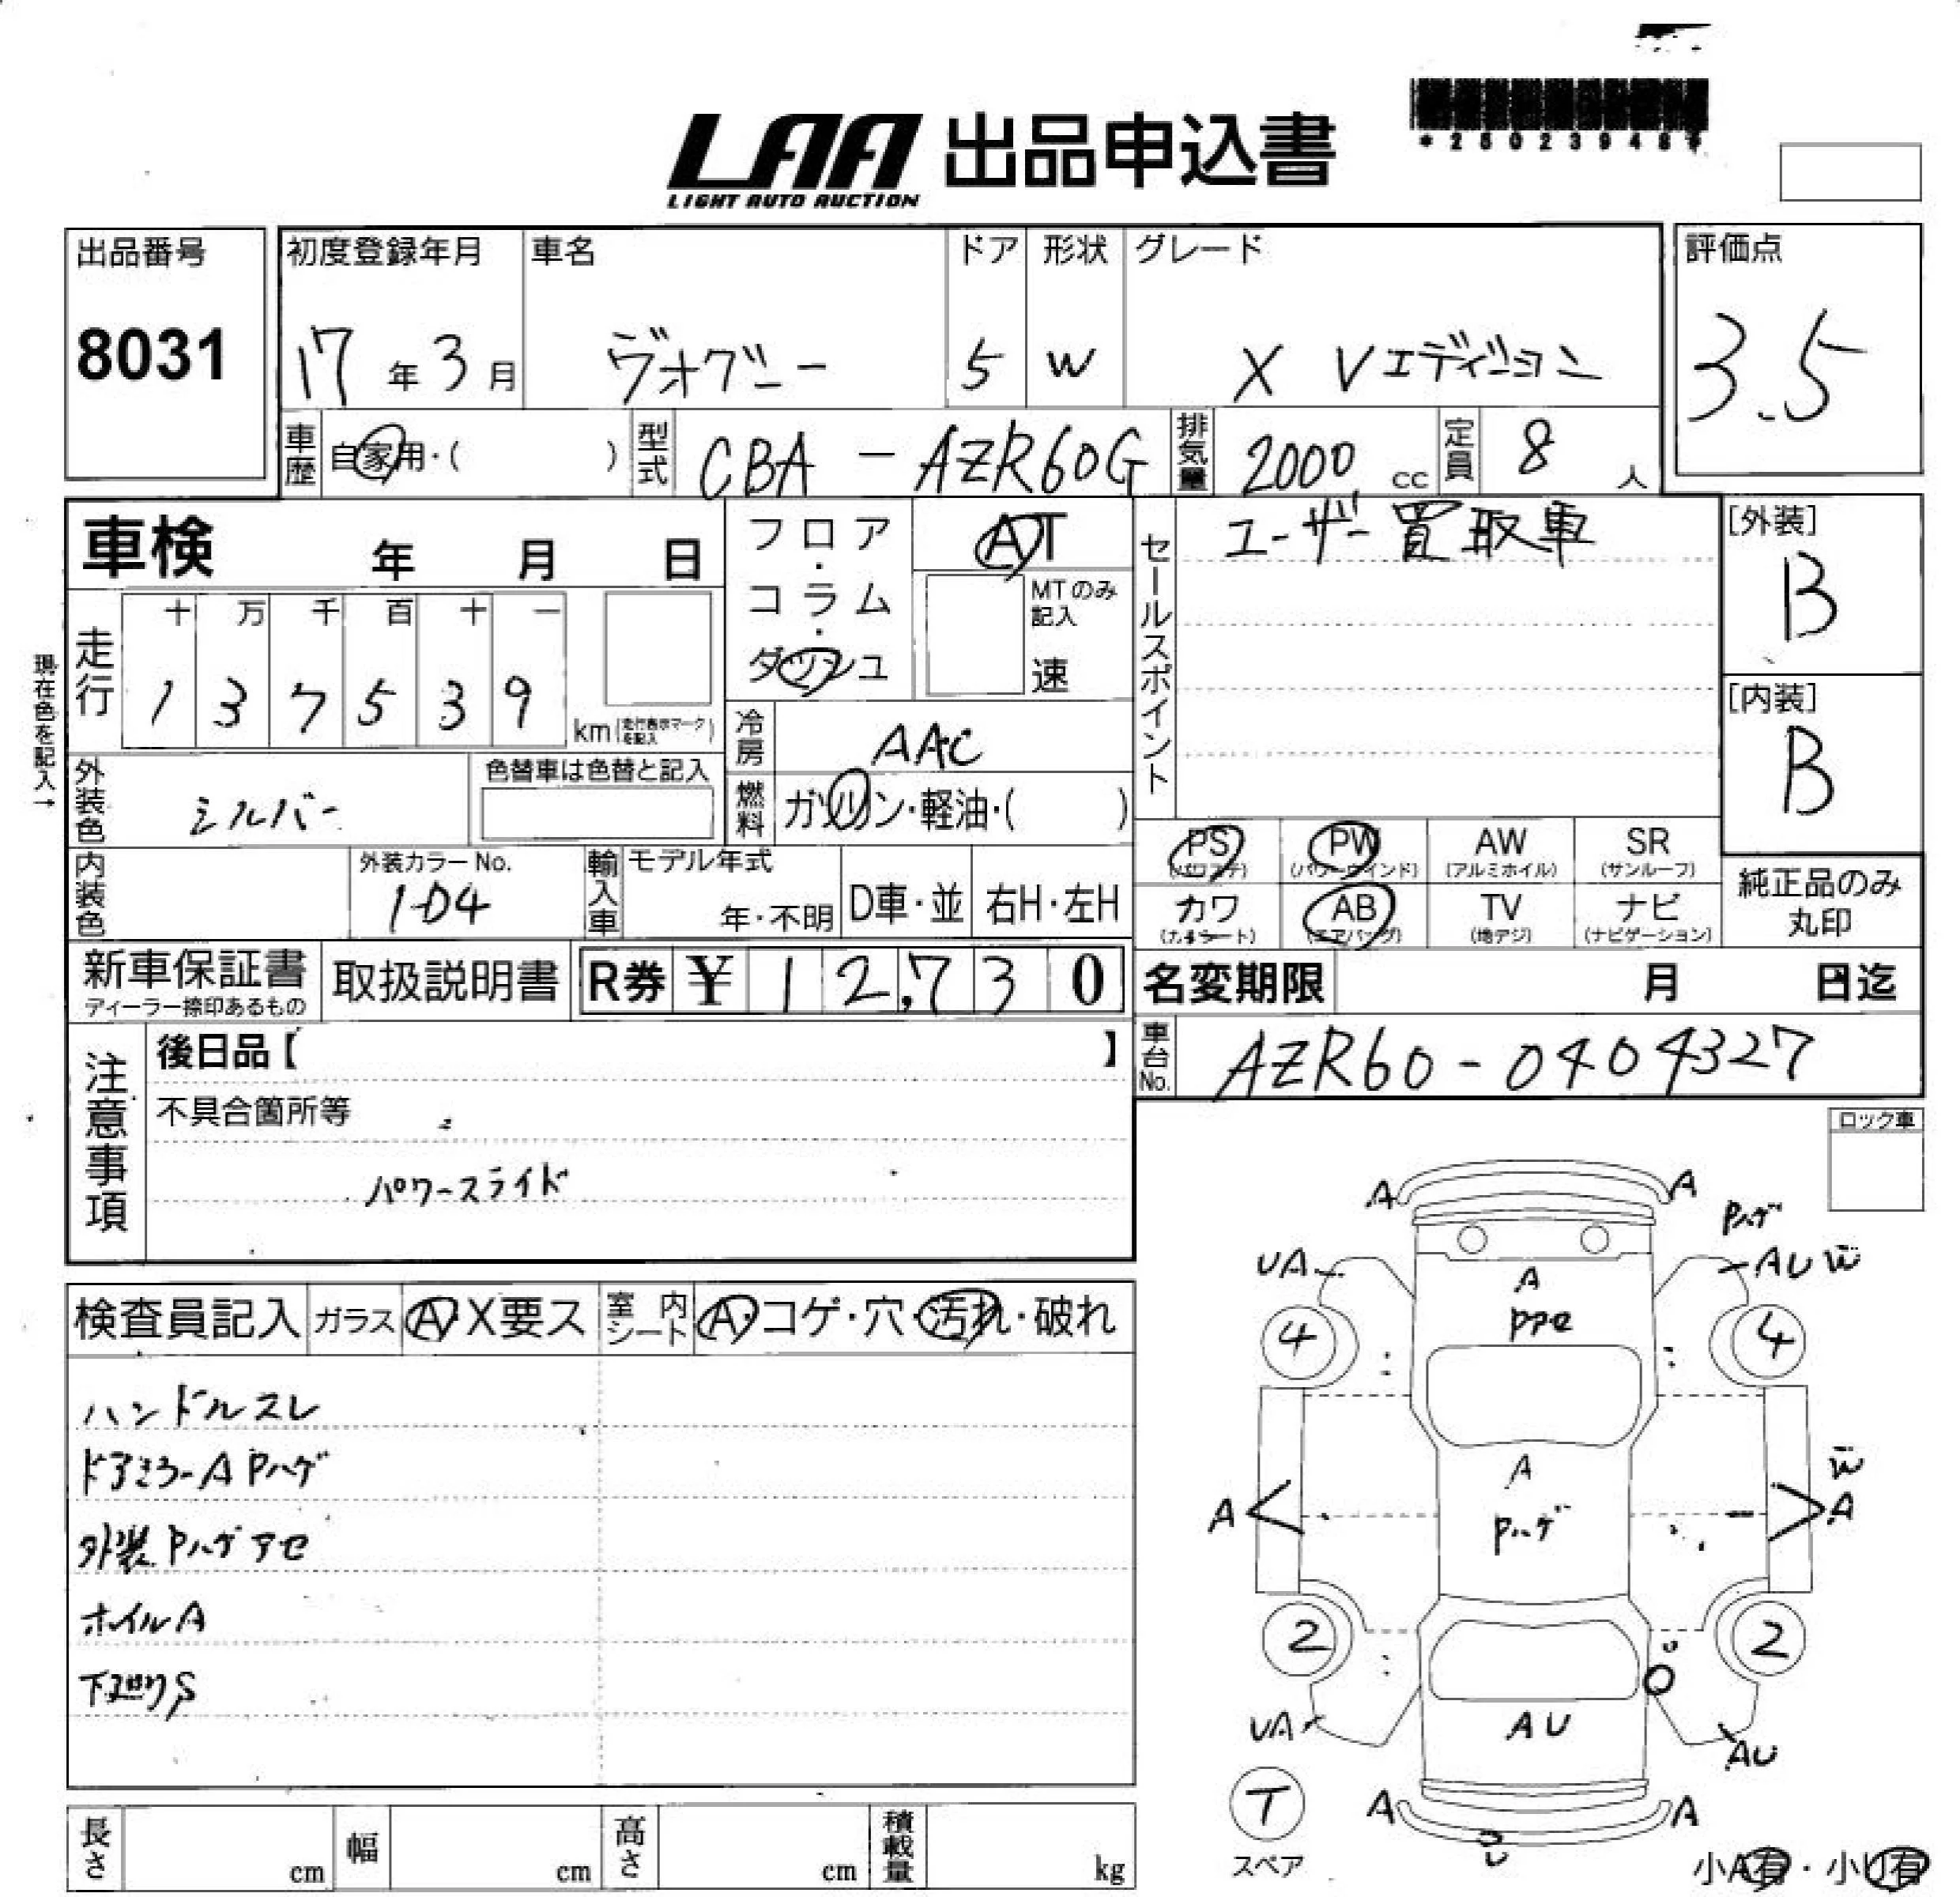 *25023948*
LAA 出品申込書
LIGHT AUTO AUCTION
出品番号
8031
初度登録年月
17年3月
車名
ヴォクシー
ドア
5
形状
W
グレード
X Vエディション
評価点
3.5
車歴
自家用・( )
型式
CBA-AZR60G
排気量
2000 cc
定員
8 人
車検 年 月 日
フロア・コラム・ダッシュ
AT
MTのみ記入
速
セールスポイント
ユーザー買取車
[外装]
B
[内装]
B
現在色を記入→
走行
十 万 千 百 十 一
1 3 7 5 3 9
km(走行表示マークを記入)
冷房
AAC
外装色
シルバー
色替車は色替と記入
燃料
ガソリン・軽油・( )
内装色
外装カラーNo.
1D4
輸入車
モデル年式
年・不明
D車・並
右H・左H
PS
(パワステ)
PW
(パワーウインド)
AW
(アルミホイル)
SR
(サンルーフ)
カワ
(カワシート)
AB
(エアバッグ)
TV
(地デジ)
ナビ
(ナビゲーション)
純正品のみ
丸印
新車保証書
ディーラー捺印あるもの
取扱説明書
R券 ¥12,730
名変期限 月 日迄
車台No.
AZR60-0404327
注意事項
後日品【 】
不具合箇所等
パワースライド
ロック車
検査員記入
ガラス A・X要ス
室内シート A・コゲ・穴・汚れ・破れ
ハンドルスレ
ドアミラーA Pハゲ
外装Pハゲアセ
ホイルA
下廻りS
A A
Pハゲ
UA AU W
A
4 4
A
W
A A
Pハゲ
2 2
UA AU AU
T
スペア
A A
U
小A有・小U有
長さ cm
幅 cm
高さ cm
積載量 kg